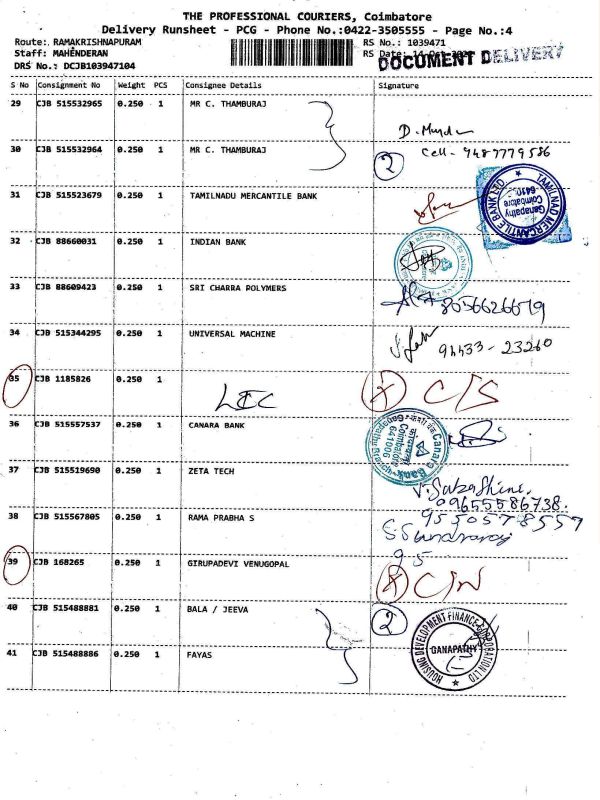 THE PROFESSIONAL COURIERS, Coimbatore
Delivery Runsheet - PCG - Phone No.:0422-3505555 - Page No.:4
Route: RAMAKRISHNAPURAM RS No.: 1039471
Staff: MAHENDERAN RS Date:
DOCUMENT DELIVERY
DRS No.: DCJB103947104
S No Consignment No Weight PCS Consignee Details Signature
29 CJB 515532965 0.250 1 MR C. THAMBURAJ
30 CJB 515532964 0.250 1 MR C. THAMBURAJ 2 Cell- 9487779586
31 CJB 515523679 0.250 1 TAMILNADU MERCANTILE BANK
TAMILNAD MERCANTILE BANK LTD Ganapathy Coimbatore
32 CJB 88660031 0.250 1 INDIAN BANK
33 CJB 88609423 0.250 1 SRI CHARRA POLYMERS 8056626679
34 CJB 515344295 0.250 1 UNIVERSAL MACHINE 94433-23260
35 CJB 1185826 0.250 1 LIC C/S
36 CJB 515557537 0.250 1 CANARA BANK
Canara Bank Coimbatore 641006
37 CJB 515519690 0.250 1 ZETA TECH 09655586738
38 CJB 515567805 0.250 1 RAMA PRABHA S 9550578557
39 CJB 168265 0.250 1 GIRUPADEVI VENUGOPAL 95
40 CJB 515488881 0.250 1 BALA / JEEVA 2
HOUSING DEVELOPMENT FINANCE CORPORATION LTD GANAPATHY
41 CJB 515488886 0.250 1 FAYAS